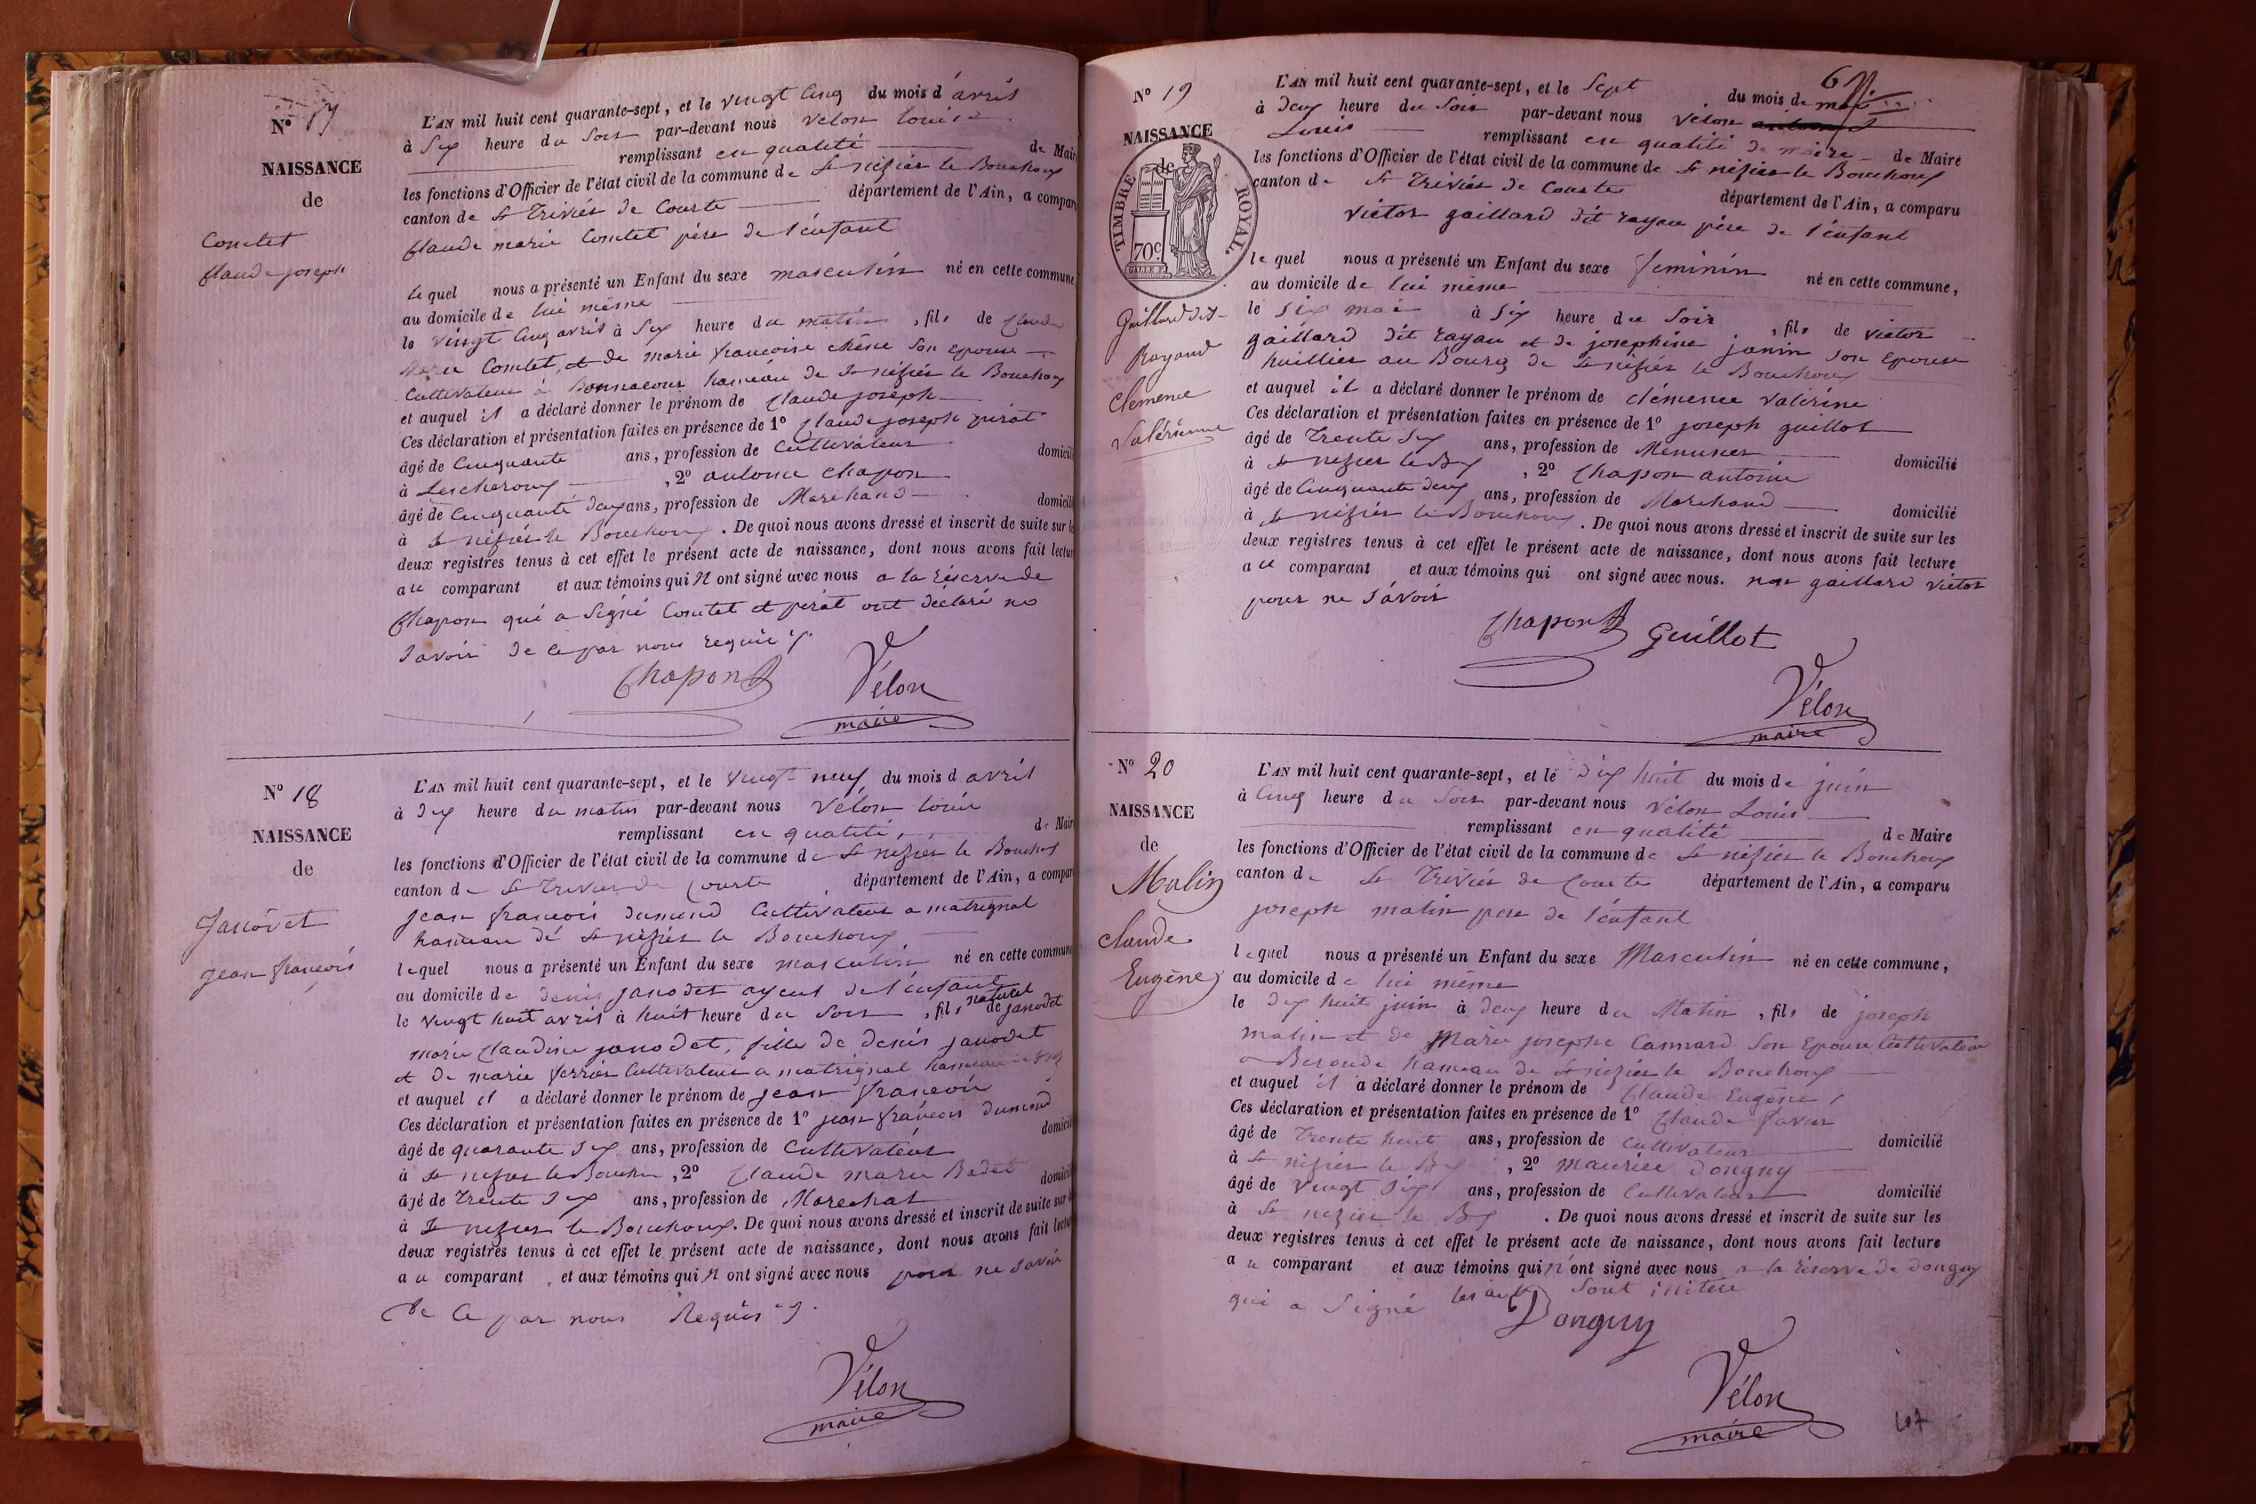 Nº 17
NAISSANCE
de
Comtet
Claude joseph
L'AN mil huit cent quarante-sept, et le vingt cinq du mois d'avril
à Six heure du Soir par-devant nous Velon louis
remplissant en qualité de Maire
les fonctions d'Officier de l'état civil de la commune de St nizier le Bouchoux
canton de St Trivier de Courte département de l'Ain, a comparu
Claude marie Comtet père de l'enfant
le quel nous a présenté un Enfant du sexe masculin né en cette commune
au domicile de lui même
le vingt cinq avril à Six heure du matin, fils de Claude
marie Comtet, et de marie françoise chêne Son epouse
Cultivateur à Bonnacour hameau de St nizier le Bouchoux
et auquel il a déclaré donner le prénom de Claude joseph
Ces déclaration et présentation faites en présence de 1º Claude joseph pirat
âgé de Cinquante ans, profession de Cultivateur domicilié
à Lescheroux, 2º antoine Chapon
âgé de Cinquante deux ans, profession de Marchand domicilié
à St nizier le Bouchoux. De quoi nous avons dressé et inscrit de suite sur les
deux registres tenus à cet effet le présent acte de naissance, dont nous avons fait lecture
au comparant et aux témoins qui N ont signé avec nous a la réserve de
Chapon qui a Signé Comtet et pirat ont déclaré ne
Savoir de ce par nous requis
Chapon
Vélon
maire
Nº 18
NAISSANCE
de
Janodet
jean françois
L'AN mil huit cent quarante-sept, et le vingt neuf du mois d avril
à dix heure du matin par-devant nous Vélon louis
remplissant en qualité, de Maire
les fonctions d'Officier de l'état civil de la commune de St nizier le Bouchoux
canton de St Trivier de Courte, département de l'Ain, a comparu
jean françois dumond Cultivateur a matrignat
hameau de St nizier le Bouchoux
lequel nous a présenté un Enfant du sexe masculin né en cette commune
au domicile de denis janodet ayeul de l'enfant
le vingt huit avril à huit heure du Soir, fils naturel de janodet
marie Claudine janodet, fille de denis janodet
et de marie ferrier Cultivateur a matrignat hameau
et auquel il a déclaré donner le prénom de jean françois
Ces déclaration et présentation faites en présence de 1º jean françois dumond
âgé de quarante Six ans, profession de Cultivateur domicilié
à St nizier le Bouchou, 2º Claude marie Badet
âgé de Trente Six ans, profession de Marechal domicilié
à St nizier le Bouchoux. De quoi nous avons dressé et inscrit de suite sur les
deux registres tenus à cet effet le présent acte de naissance, dont nous avons fait lecture
au comparant, et aux témoins qui N ont signé avec nous pour ne Savoir
de ce par nous Requis
Vélon
maire
Nº 19
NAISSANCE
de
TIMBRE ROYAL
70 c.
Gaillard dit
Rayand
Clemence
Valérienne
L'AN mil huit cent quarante-sept, et le Sept du mois de mai
à deux heure du Soir par-devant nous Velon
Louis remplissant en qualité de maire de Maire
les fonctions d'Officier de l'état civil de la commune de St nizier le Bouchoux
canton de St Trivier de Courte département de l'Ain, a comparu
Victor gaillard dit rayau père de l'enfant
le quel nous a présenté un Enfant du sexe feminin né en cette commune,
au domicile de lui même
le Six mai à Six heure du Soir, fils de victor
gaillard dit rayau et de josephine janin Son epouse
huillier au Bourg de St nizier le Bouchoux
et auquel il a déclaré donner le prénom de clémence valérine
Ces déclaration et présentation faites en présence de 1º joseph guillot
âgé de Trente Six ans, profession de Menusier domicilié
à St nizier le Bx, 2º Chapon antoine
âgé de Cinquante deux ans, profession de Marchand domicilié
à St nizier le Bouchoux. De quoi nous avons dressé et inscrit de suite sur les
deux registres tenus à cet effet le présent acte de naissance, dont nous avons fait lecture
au comparant et aux témoins qui ont signé avec nous. non gaillard victor
pour ne Savoir
Chapon Guillot
Vélon
maire
Nº 20
NAISSANCE
de
Malin
Claude
Eugène
L'AN mil huit cent quarante-sept, et le dix huit du mois de juin
à Cinq heure du Soir par-devant nous Vélon Louis
remplissant en qualité de Maire
les fonctions d'Officier de l'état civil de la commune de St nizier le Bouchoux
canton de St Trivier de Courte département de l'Ain, a comparu
joseph malin pere de l'enfant
lequel nous a présenté un Enfant du sexe Masculin né en cette commune,
au domicile de lui même
le dix huit juin à deux heure du Matin, fils de joseph
malin et de Marie josephe Cannard Son Epouse Cultivateur
a Beronde hameau de St nizier le Bouchoux
et auquel il a déclaré donner le prénom de Claude Eugène
Ces déclaration et présentation faites en présence de 1º Claude favier
âgé de Trente huit ans, profession de Cultivateur domicilié
à St nizier le Bx, 2º maurice dongny
âgé de vingt Six ans, profession de Cultivateur domicilié
à St nizier le Bx. De quoi nous avons dressé et inscrit de suite sur les
deux registres tenus à cet effet le présent acte de naissance, dont nous avons fait lecture
au comparant et aux témoins qui n ont signé avec nous a la réserve de donguy
qui a Signé les autres Sont illitéré
Donguy
Vélon
maire
107